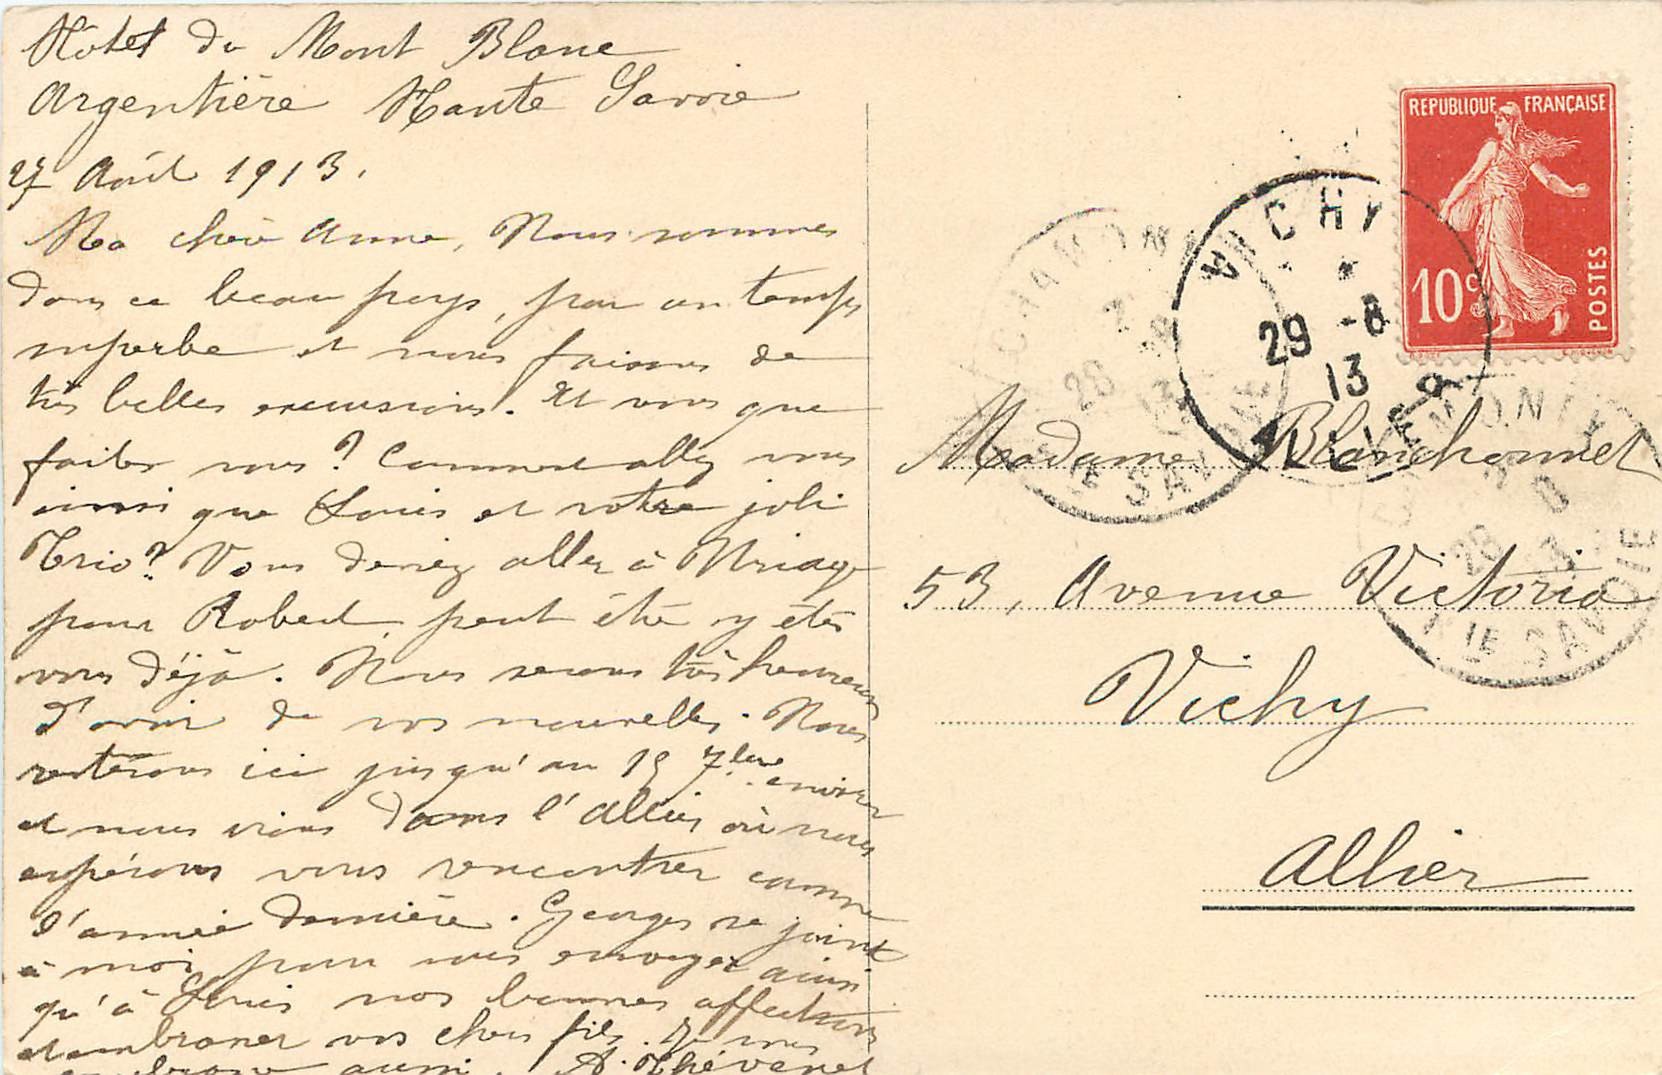 Hôtel du Mont Blanc
Argentière Haute Savoie
27 Août 1913.
Ma chère Anne, Nous sommes
dans ce beau pays, par un temps
superbe et nous faisons de
très belles excursions. Et vous que
faites vous? Comment allez vous
ainsi que Louis et votre joli
Trio? Vous deviez aller à Uriage
pour Robert, peut être y êtes
vous déjà. Nous serions très heureux
d'avoir de vos nouvelles. Nous
resterons ici jusqu'au 15 7bre environ
et nous irons dans l'Allier où nous
espérons vous rencontrer comme
l'année dernière. Georges se joint
à moi pour vous envoyer ainsi
qu'à Louis nos bonnes affections
et embrasser vos chers fils. Je vous
embrasse aussi. A. Thévenet
REPUBLIQUE FRANÇAISE
10c
POSTES
VICHY
29 -8
13
ALLIER
CHAMONIX
28
13
HTE SAVOIE
CHAMONIX
28 8
13
HTE SAVOIE
Madame Blanchonnet
53, Avenue Victoria
Vichy
Allier